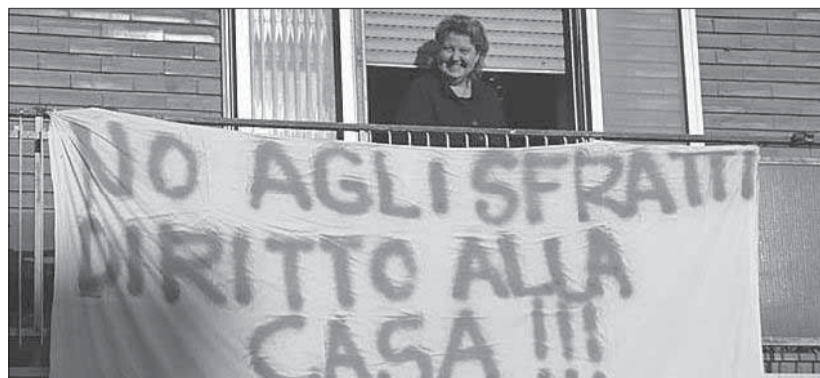 NO AGLI SFRATTI
DIRITTO ALLA
CASA !!!